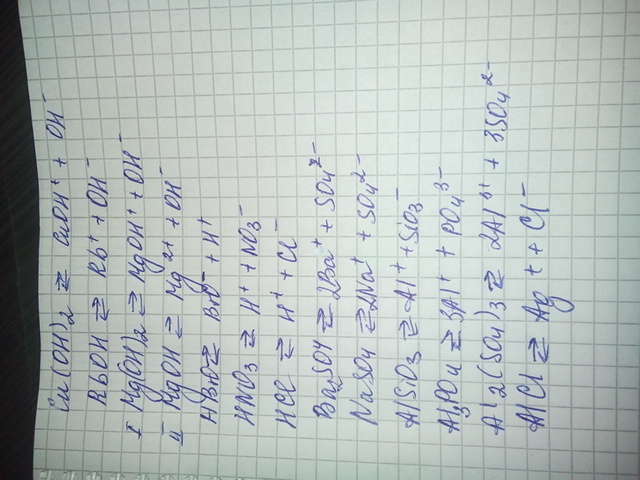 Cu(OH)2 ⇄ CuOH+ + OH-
RbOH ⇄ Rb+ + OH-
I Mg(OH)2 ⇄ MgOH+ + OH-
II MgOH ⇄ Mg2+ + OH-
HBrO ⇄ BrO- + H+
HNO3 ⇄ H+ + NO3-
HCl ⇄ H+ + Cl-
Ba2SO4 ⇄ 2Ba+ + SO42-
NaSO4 ⇄ 2Na+ + SO42-
AlSiO3 ⇄ Al+ + SiO3-
Al3PO4 ⇄ 3Al+ + PO43-
Al2(SO4)3 ⇄ 2Al3+ + 3SO42-
AlCl ⇄ Ag+ + Cl-